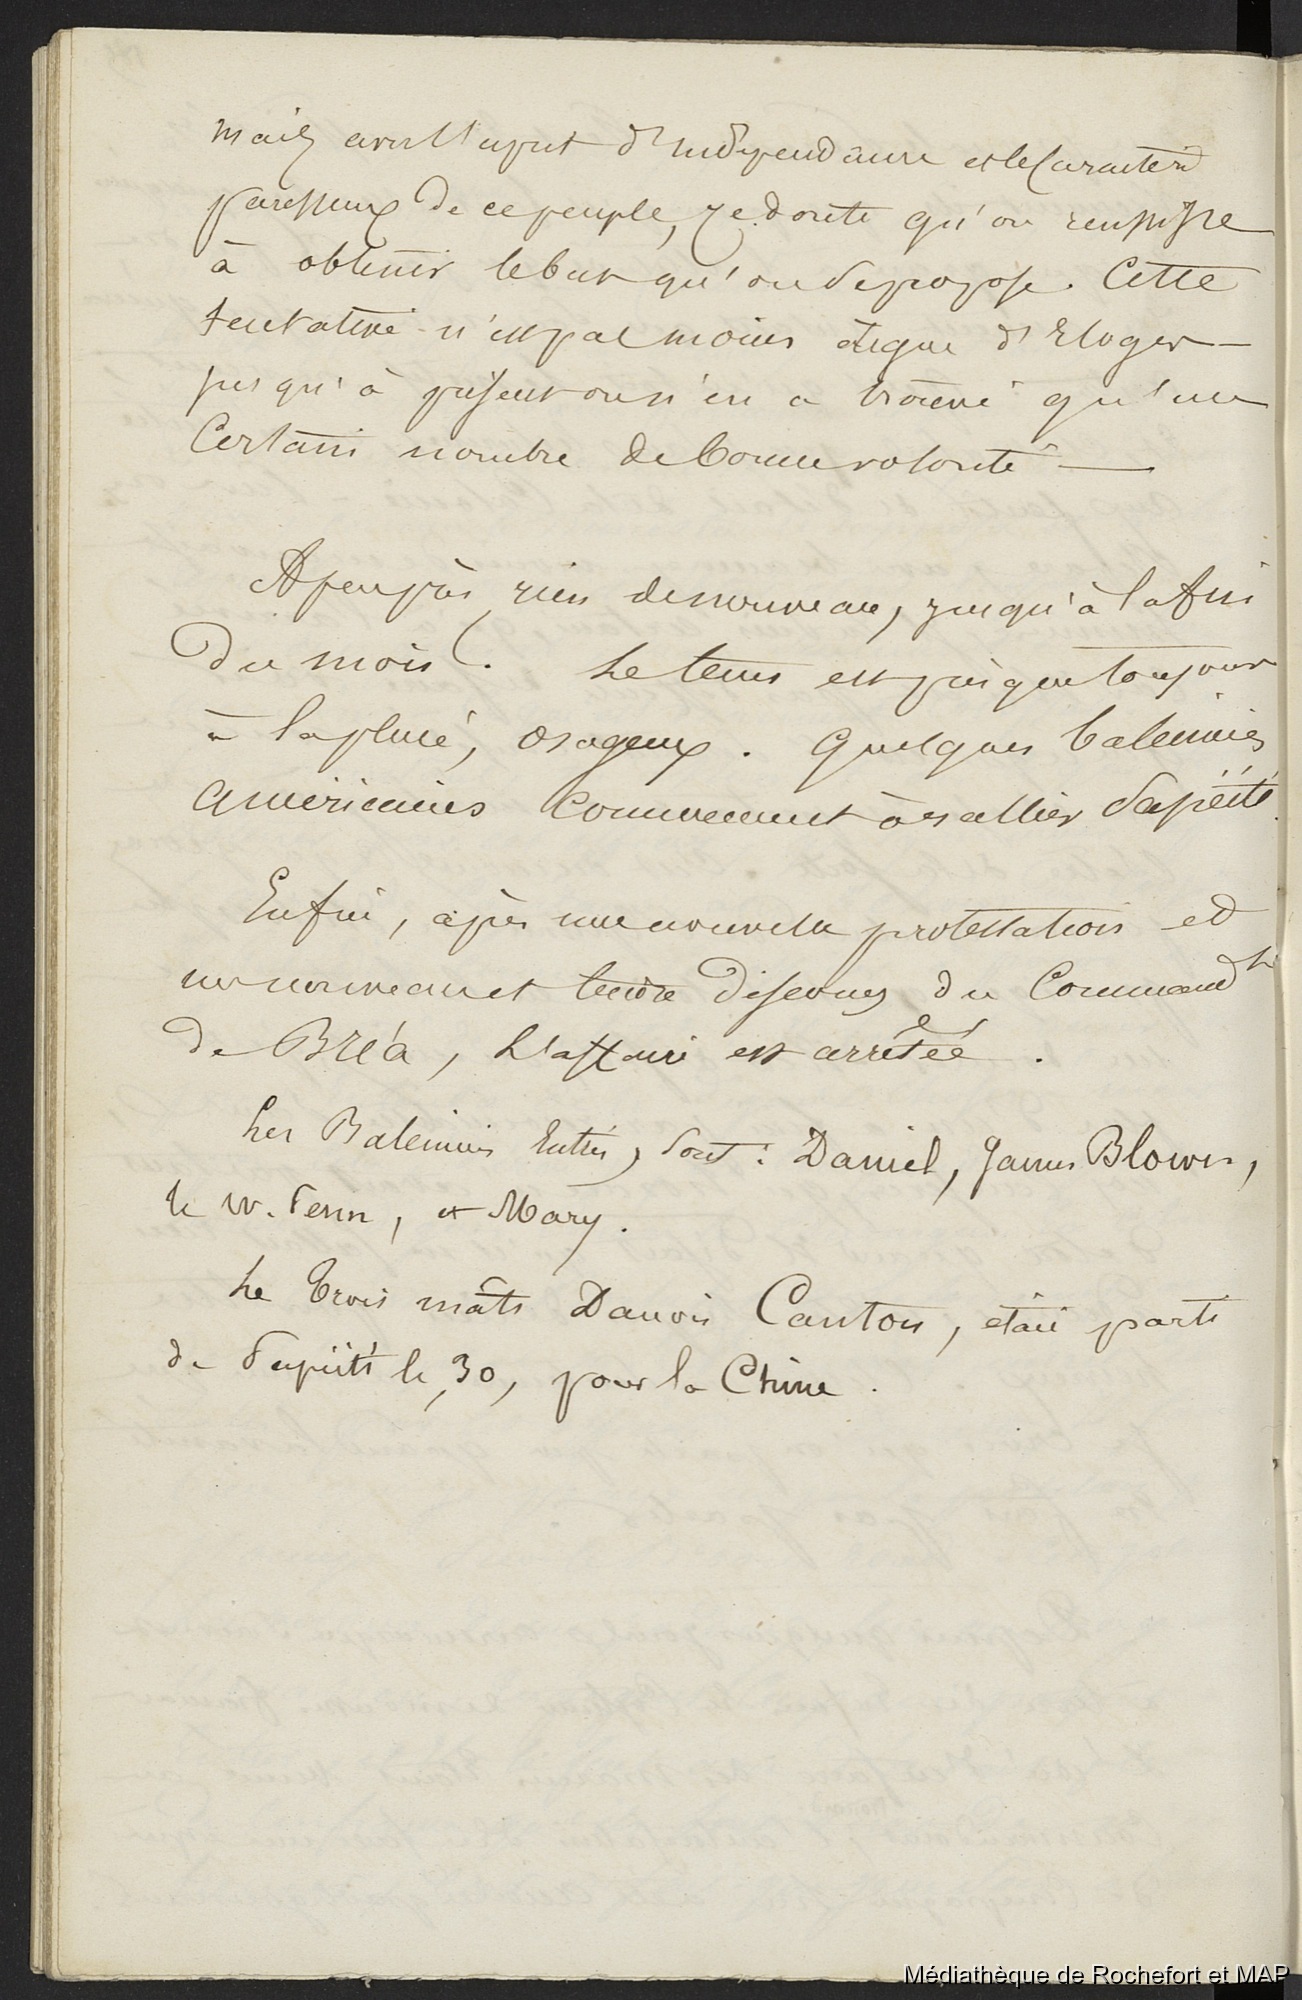 mais avec l'esprit d'independance et le Caractère
paresseux de ce peuple, je doute qu'on reussisse
à obtenir le but qu'on se propose. Cette
tentative n'est pas moins digne d'Eloges —
jusqu'à présent on n'en a trouvé qu'un
Certain nombre de bonne volonté —
A peu près rien de nouveau, jusqu'à la fin
du mois. Le tems est presque toujours
à la pluie, orageux. Quelques baleiniers
américains Commencent à rallier Papéïté.
Enfin, après une nouvelle protestation et
un nouveau et tendre discours du Command^t
de Bréa, L'affaire est arrêtée.
Les Baleiniers Entrés, sont : Daniel, James
le W. Penn, et Mary.
Le trois mâts Danois Canton, était parti
de Papéïti le 30, pour la Chine.
Médiathèque de Rochefort et MAP